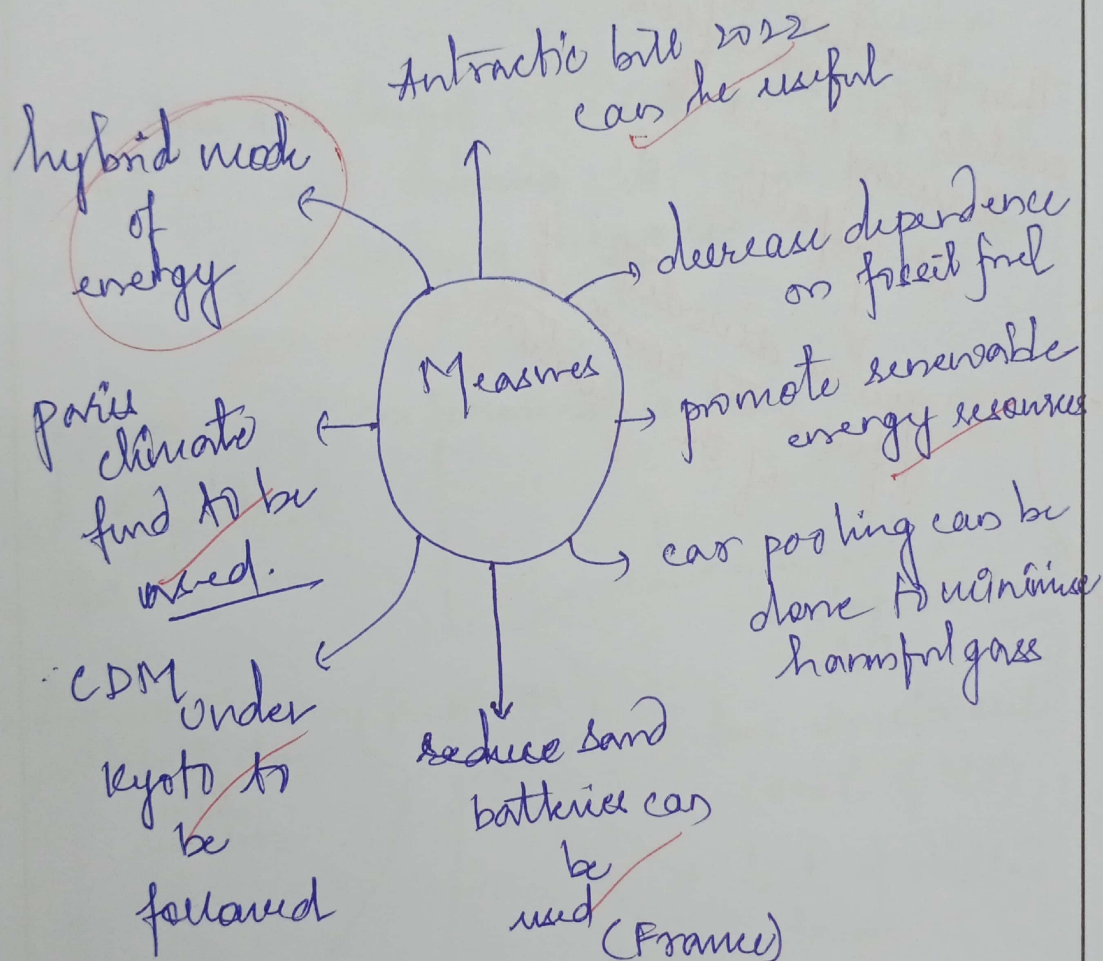 Antractic bill 2022
can be useful
hybrid mode
of
energy
decrease dependence
on fossil fuel
Measures
promote renewable
energy resources
paris
climate
fund to be
used.
car pooling can be
done to minimise
harmful gass
CDM under
kyoto to
be
followed
reduce sand
batteries can
be
used (France)